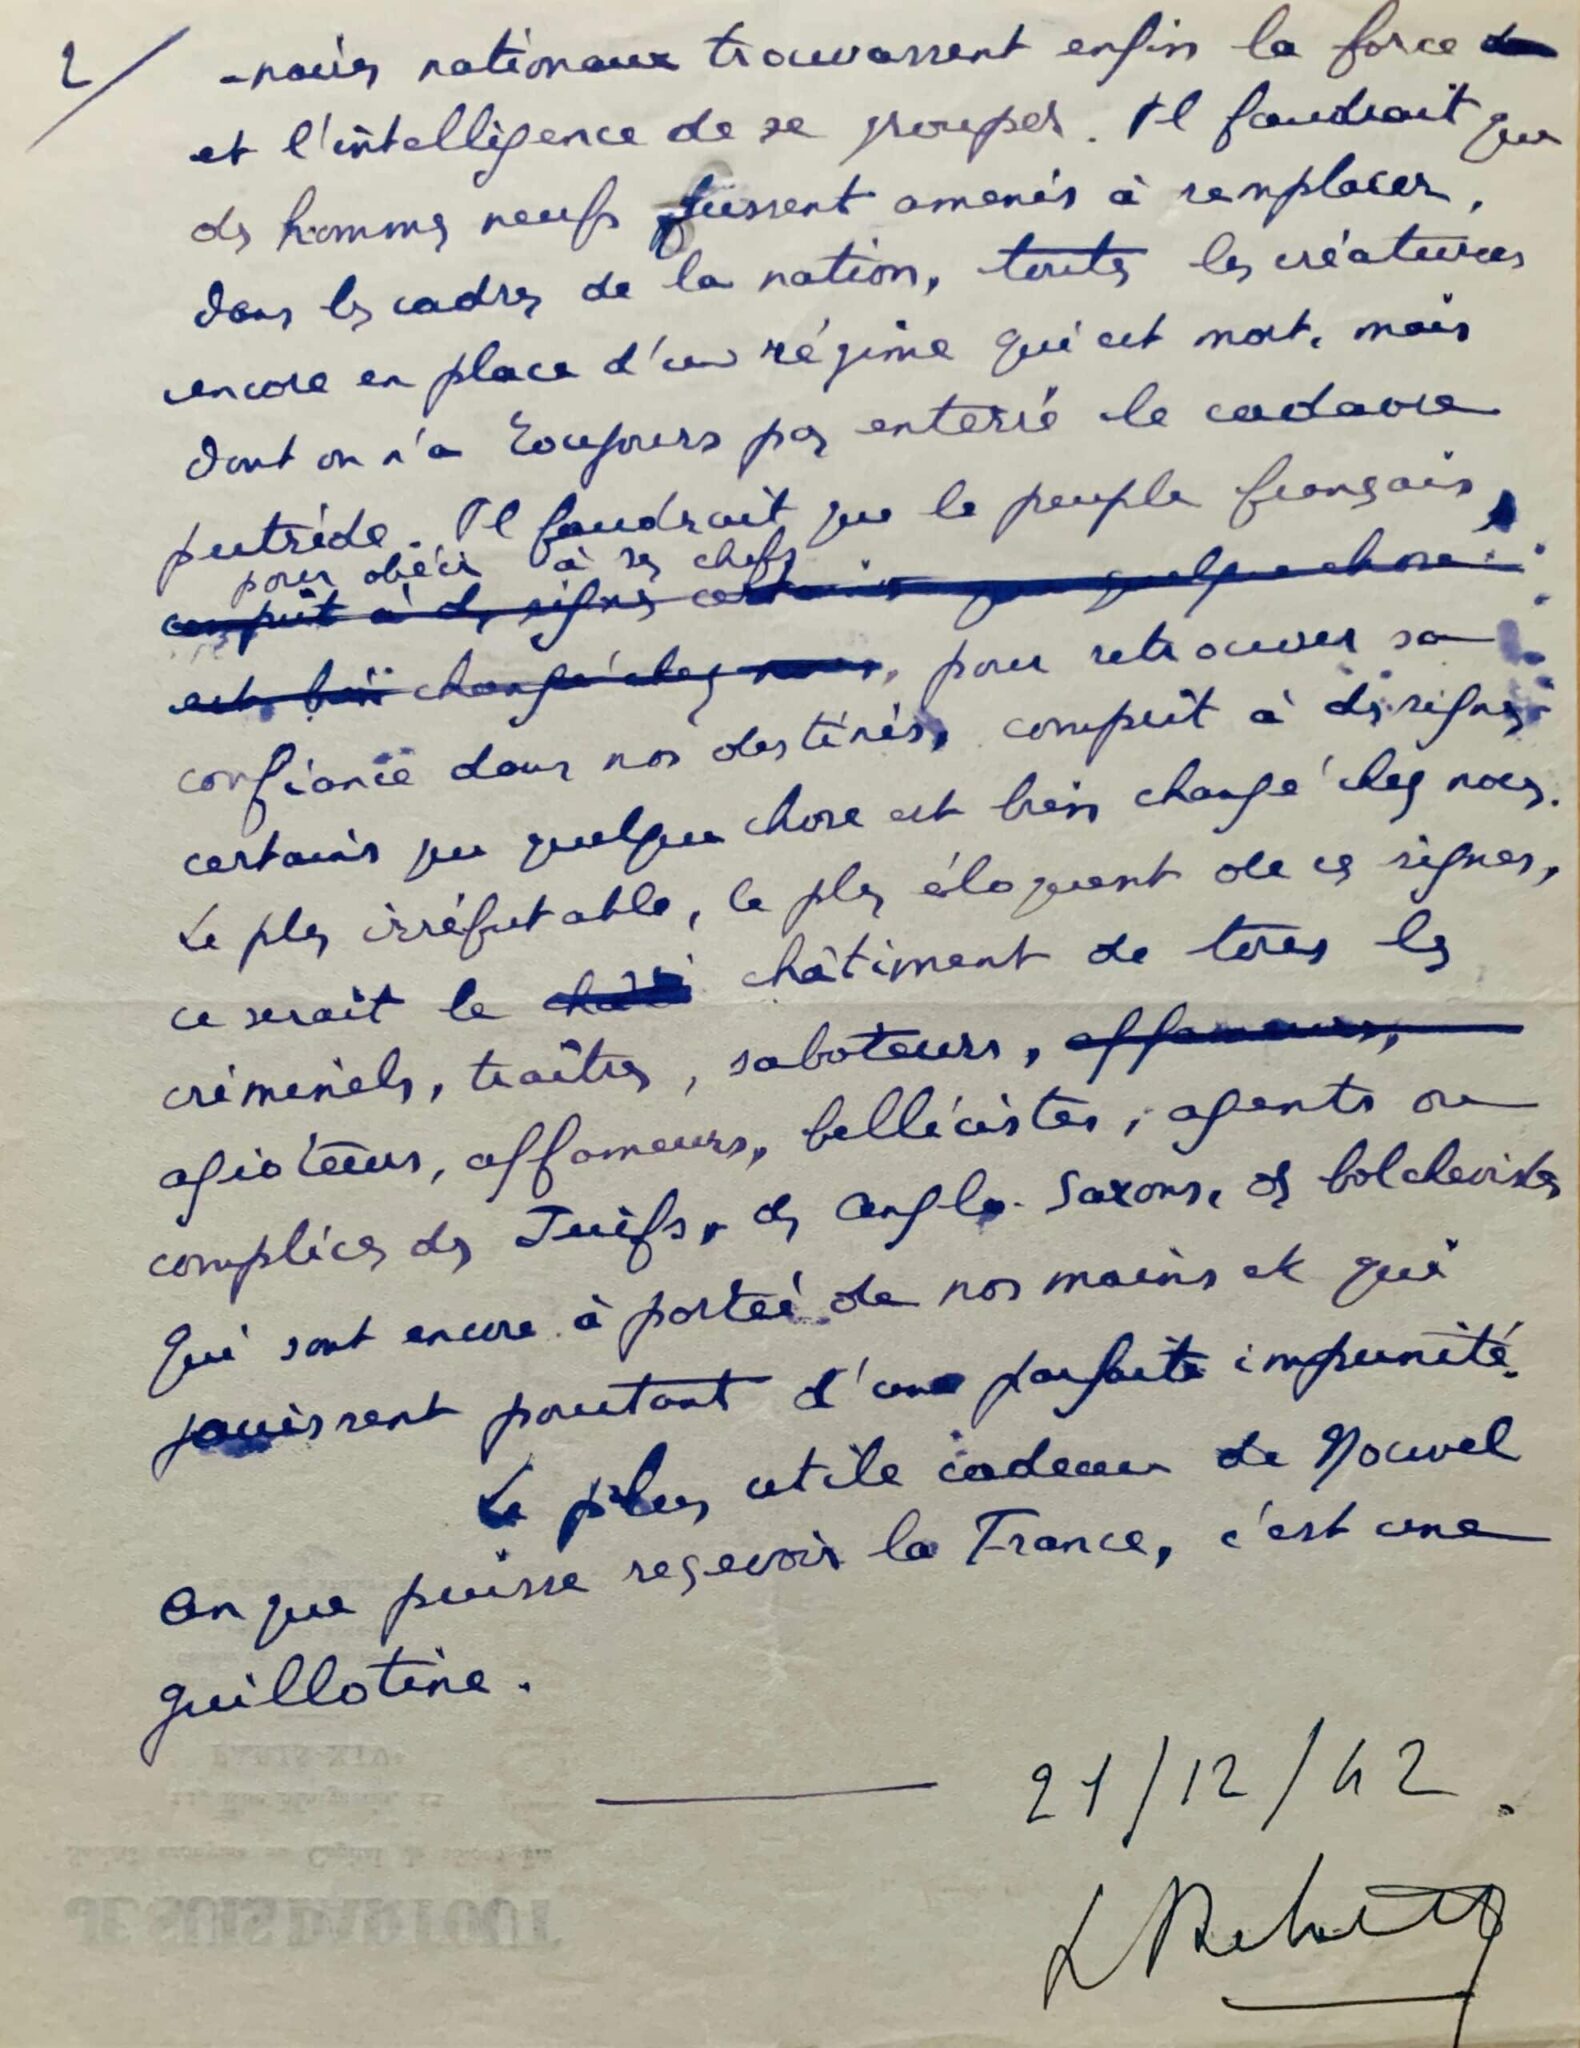 2/
-naires nationaux trouvassent enfin la force de
et l'intelligence de se grouper. Il faudrait que
des hommes neufs fussent amenés à remplacer,
dans les cadres de la nation, toutes les créatures
encore en place d'un régime qui est mort, mais
dont on n'a toujours pas enterré le cadavre
putride. Il faudrait que le peuple français,
pour obéir à ses chefs
comprît à des signes certains que quelque chose
est bien changé chez nous, pour retrouver sa
confiance dans nos destinées, comprît à des signes
certains que quelque chose est bien changé chez nous.
Le plus irréfutable, le plus éloquent de ces signes,
ce serait le châti châtiment de tous les
criminels, traîtres, saboteurs, affameurs,
agioteurs, affameurs, bellicistes, agents ou
complices des Juifs, des Anglo-Saxons, des bolchevistes
qui sont encore à portée de nos mains et qui
jouissent pourtant d'une parfaite impunité.
Le plus utile cadeau de Nouvel
An que puisse reçevoir la France, c'est une
guillotine.
21/12/42.
L Rebatet
PARIS-XIVe
JE SUIS PARTOUT